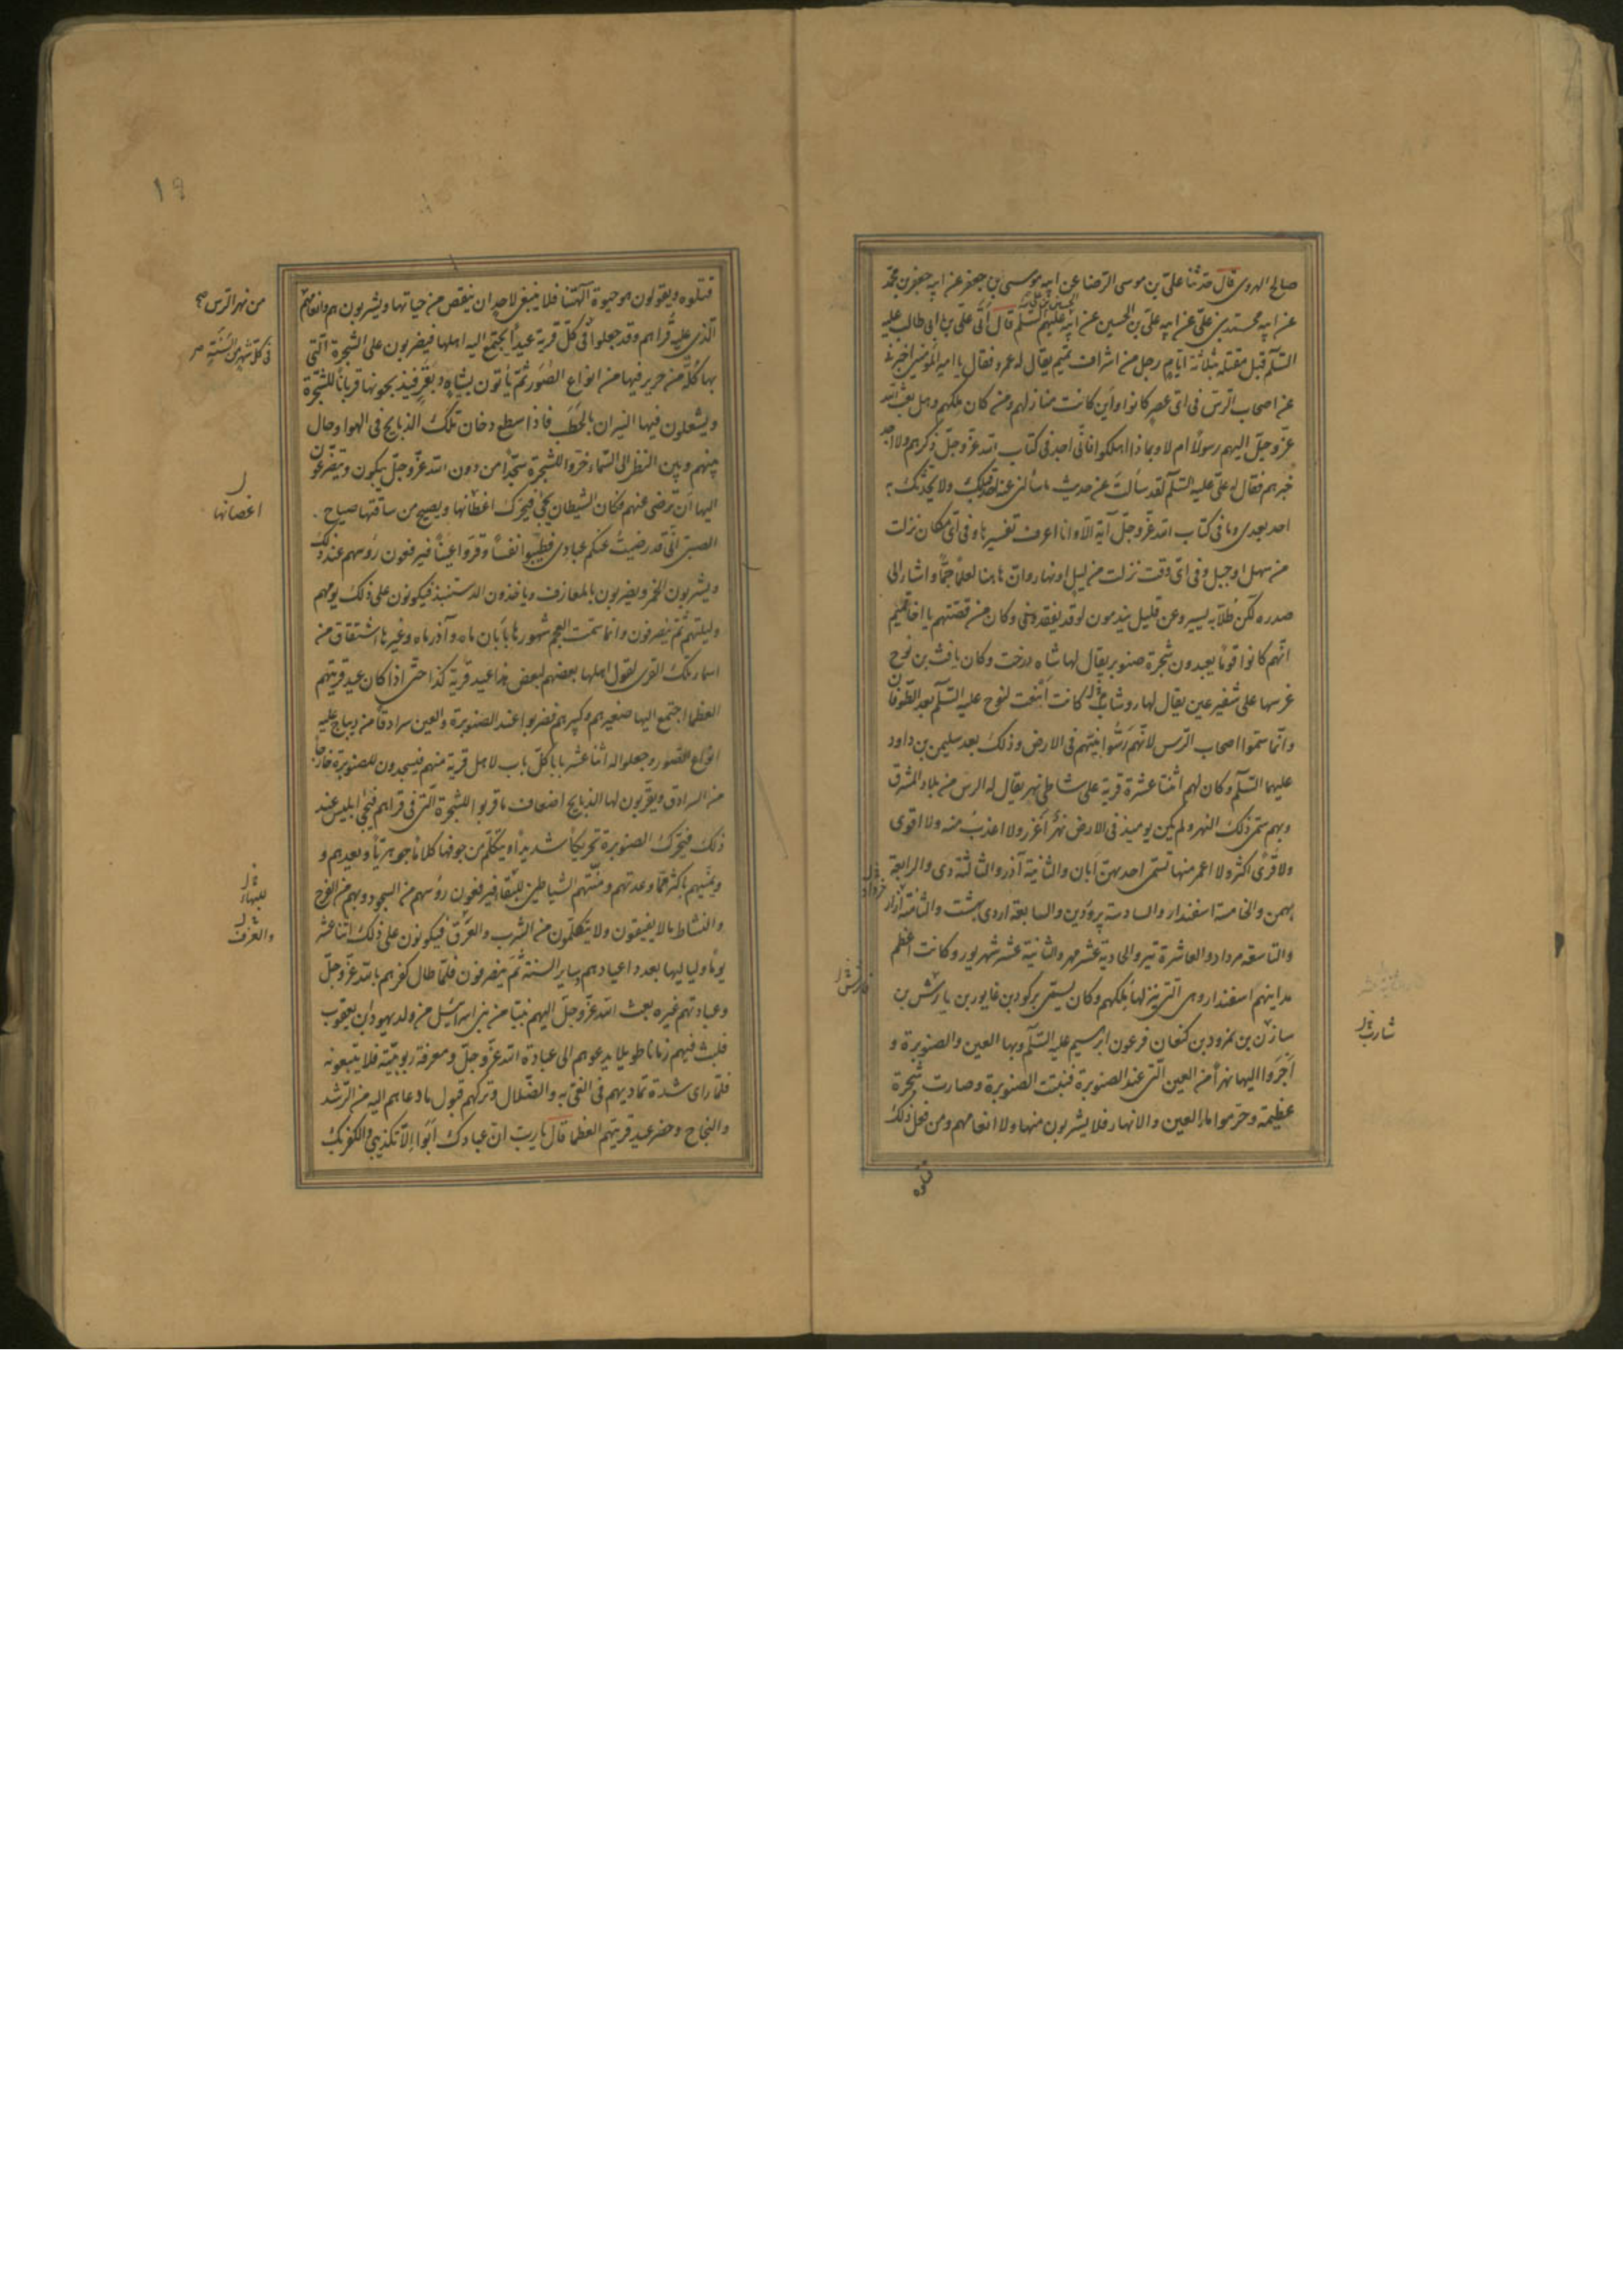 صالح الهروی قال حدثنا علیّ بن موسی الرضا عن ابیه موسی بن جعفر عن ابیه جعفر بن محمّد
عن ابیه محمّد بن علیّ عن ابیه علیّ بن الحسین عن ابیه الحسین بن علیّ علیهم السّلم قال أتی علی بن ابی طالب علیه
السّلم قبل مقتله بثلاثة ایّام رجل من اشراف تمیم یقال له عمرو فقال یا امیر المؤمنین اخبرنی
عن اصحاب الرّسّ فی ایّ عصر کانوا واین کانت منازلهم ومن کان ملکهم وهل بعث الله
عزّ وجلّ الیهم رسولًا ام لا وبماذا اهلکوا فانّی اجد فی کتاب الله عزّ وجلّ ذکرهم ولا اجد
خبرهم فقال له علیّ علیه السّلم لقد سألت عن حدیث ما سألنی عنه احد قبلک ولا یحدّثک به
احد بعدی وما فی کتاب الله عزّ وجلّ آیة الّا وانا اعرف تفسیرها وفی ایّ مکان نزلت
من سهل او جبل وفی ایّ وقت نزلت من لیل او نهار وانّ هاهنا لعلمًا جمًّا واشار الی
صدره لکن طلّابه یسیر وعن قلیل یندمون لو قد یفقدونی وکان من قصّتهم یا اخا تمیم
انّهم کانوا قومًا یعبدون شجرة صنوبر یقال لها شاه درخت وکان یافث بن نوح
غرسها علی شفیر عین یقال لها روشاب کانت انبعت لنوح علیه السّلم بعد الطّوفان
وانّما سمّوا اصحاب الرّسّ لانّهم رسّوا نبیّهم فی الارض وذلک بعد سلیمن بن داود
علیهما السّلم وکان لهم اثنتا عشرة قریة علی شاطئ نهر یقال له الرسّ من بلاد المشرق
وبهم سمّی ذلک النهر ولم یکن یومئذ فی الارض نهر اغزر ولا اعذب منه ولا اقوی
ولا قرًی اکثر ولا اعمر منها تسمّی احدیهنّ ابان والثانیة آذر والثالثة دی والرابعة
بهمن والخامسة اسفندار والسادسة پروردین والسابعة اردی بهشت والثامنة آزار
خرداد
والتاسعة مرداد والعاشرة تیر والحادیة عشر مهر والثانیة عشر شهریور وکانت اعظم
مداینهم اسفندار وهی الّتی ینزلها ملکهم وکان یسمّی ترکوذ بن غابور بن یارش بن
سازن بن نمرود بن کنعان فرعون ابرهیم علیه السّلم وبها العین والصنوبرة و
شارب
اجروا الیها نهرًا من العین الّتی عند الصنوبرة فنبتت الصنوبرة وصارت شجرة
عظیمة وحرّموا ماء العین والانهار فلا یشربون منها ولا انعامهم ومن فعل ذلک
قتلوه
۱۹
قتلوه ویقولون هو حیوة آلهتنا فلا ینبغی لاحد ان ینقص من حیاتها ویشربون هم وانعامهم
من نهر الرّس صح
الّذی علیه قراهم وقد جعلوا فی کلّ قریة عیدًا یجتمع الیه اهلها فیضربون علی الشجرة الّتی
فی کلّ شهر من السّنة
بها کلّة من حریر فیها من انواع الصّور ثمّ یأتون بشاة وبقر فیذبحونها قربانًا للشجرة
ویشعلون فیها النیران بالحطب فاذا سطع دخان تلک الذبایح فی الهوا وحال
بینهم وبین النظر الی السّماء خرّوا للشجرة سجّدًا من دون الله عزّ وجلّ یبکون ویتضرّعون
الیها ان ترضی عنهم فکان الشیطان یجیٔ فیحرّک اغصانها ویصیح من ساقها صیاح
اغصانها
الصبیّ انّی قد رضیت عنکم عبادی فطیّبوا نفسًا وقرّوا عینًا فیرفعون رؤسهم عند ذلک
ویشربون الخمر ویضربون بالمعازف ویاخذون الدستبند فیکونون علی ذلک یومهم
ولیلتهم ثمّ ینصرفون وانّما سمّت العجم شهورها بابان ماه وآذر ماه وغیرها اشتقاق من
اسماء تلک القری لقول اهلها بعضهم لبعض هذا عید قریة کذا حتّی اذا کان عید قریتهم
العظما اجتمع الیها صغیرهم وکبیرهم فضربوا عند الصنوبرة والعین سرادقًا من دیباج علیه
انواع الصّور وجعلوا له اثنا عشر بابا کلّ باب لاهل قریة منهم فیسجدون للصنوبرة خارجًا
من السرادق ویقرّبون لها الذبایح اضعاف ما قرّبوا للشجرة الّتی فی قراهم فیجیٔ ابلیس عند
ذلک فیحرّک الصنوبرة تحریکًا شدیدًا ویتکلّم من جوفها کلامًا جوهریًّا ویعدهم و
یمنّیهم باکثر ممّا وعدتهم ومنّتهم الشیاطین للبقاء فیرفعون رؤسهم من السجود وبهم من الفرح
والنشاط ما لا یفیقون ولا یتکلّمون من الشرب والعزف فیکونون علی ذلک اثنا عشر
والعزف
یومًا ولیالیها بعدد اعیادهم بسایر السنة ثمّ ینصرفون فلمّا طال کفرهم بالله عزّ وجلّ
وعبادتهم غیره بعث الله عزّ وجلّ الیهم نبیّا من بنی اسرائیل من ولد یهودا بن یعقوب
فلبث فیهم زمانا طویلا یدعوهم الی عبادة الله عزّ وجلّ ومعرفة ربوبیّته فلا یتبعونه
فلمّا رای شدة تمادیهم فی الغیّ والضّلال وترکهم قبول ما دعاهم الیه من الرّشد
والنجاح وحضر عید قریتهم العظما قال یا ربّ انّ عبادک ابوا الّا تکذیبی والکفر بک